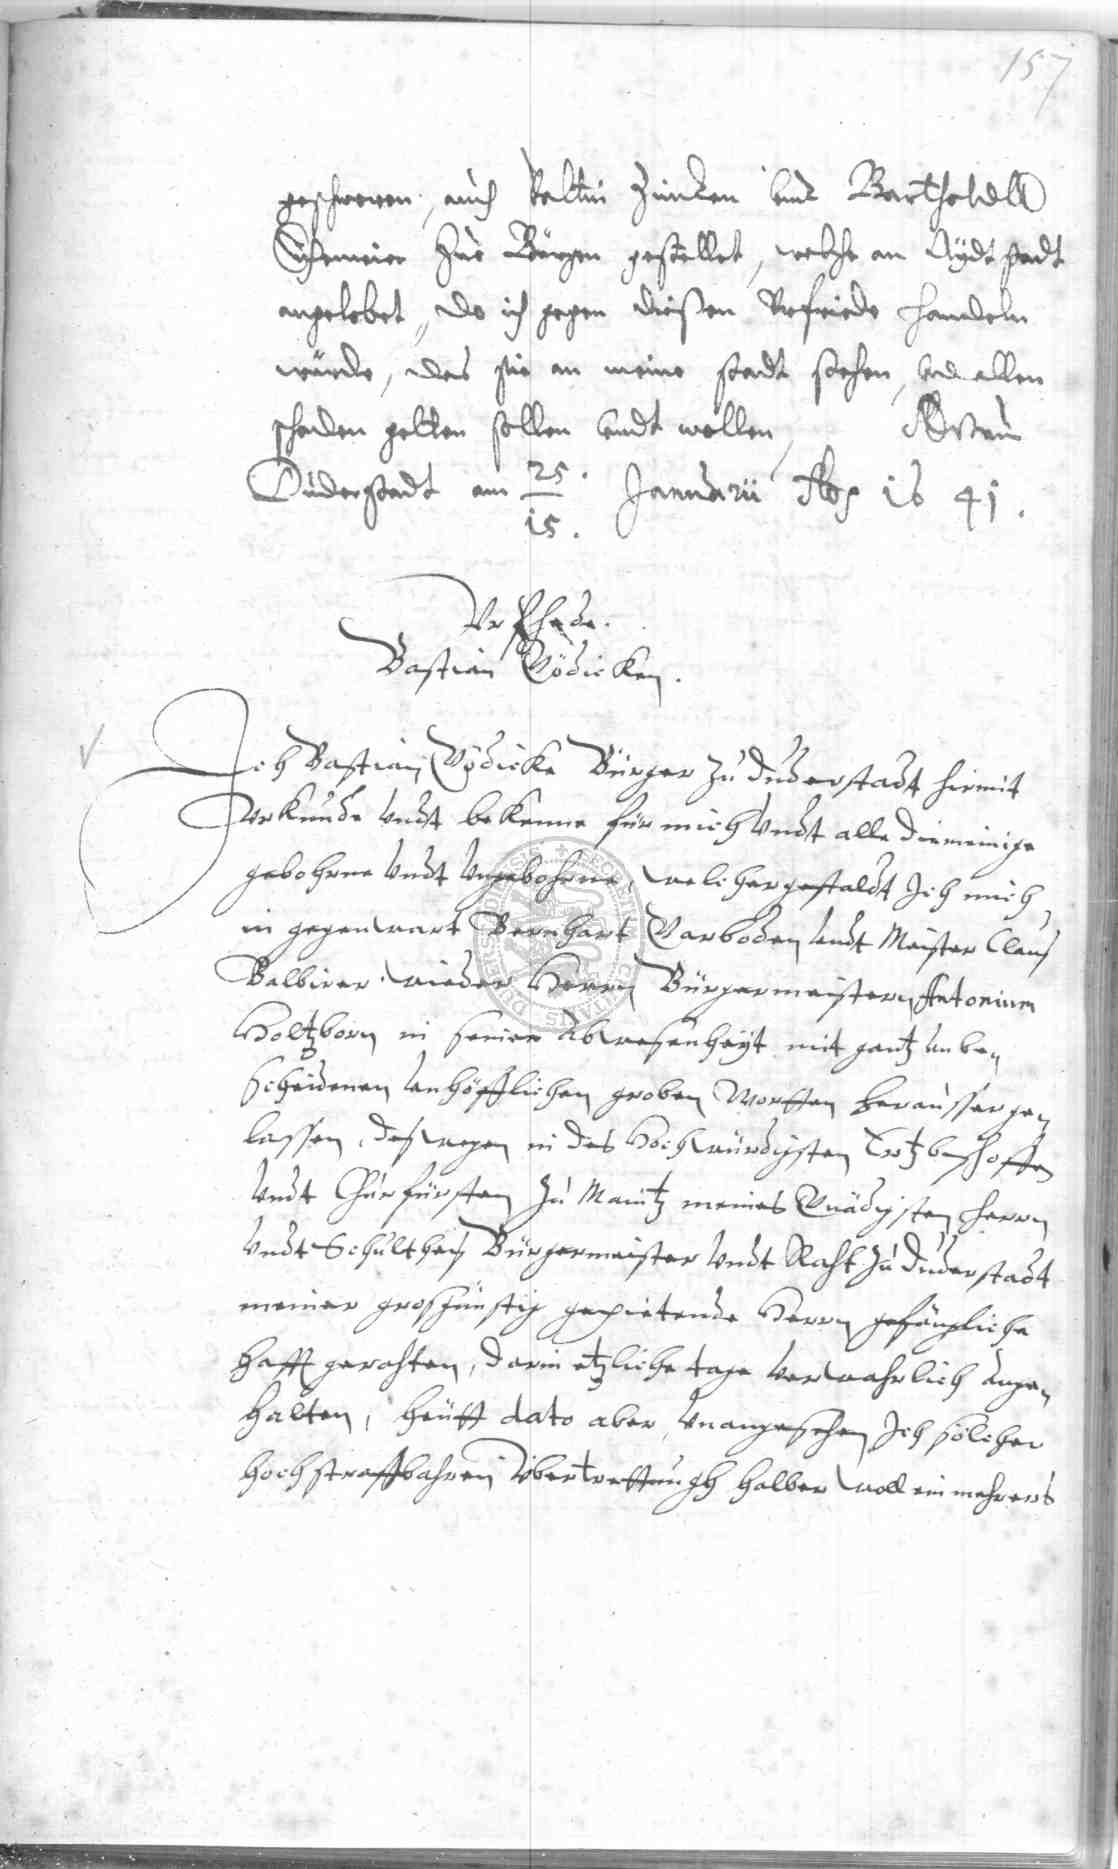 157
geschworen, auch Valtin Zincken undt Bartholdt
zue Bürgen gestellet, welche an Eydt stadt
angelobet, do ich gegen diessen Urfriede handeln
würde, das sie an meine stadt stehen, und allen
schaden gelten sollen undt wollen, Actum
Duderstadt am 25./15. Januarii Anno 1641.
Urfhede.
Bastian Vödicken.
Ich Bastian Vödicke Bürger zu Duderstadt hirmit
Urkunde undt bekenne für mich undt alle die meinige
gebohrne undt ungebohrne, welchergestaldt Ich mich
in gegenwart Bernhart Warboden undt Meister Claus
Balbirer wieder Herrn Bürgermeistern Antonium
Holtzborn in seiner abwesenheyt mit gantz unbe-
scheidenen unhöfflichen groben Wortten heraussergen
lassen, deswegen in des Hochwürdigsten Ertzbischoffen
undt Churfürsten zu Maintz meines Gnädigsten Herrn
undt Schultheis Bürgermeister undt Raht zu Duderstadt
meiner grosgünstig gepietende Herrn gefängliche
hafft gerahten, darin etzliche tage verwahrlich ange-
halten, heütt dato aber, unangesehen Ich solcher
hochstraffbahren übertrettungh halber woll ein mehrers